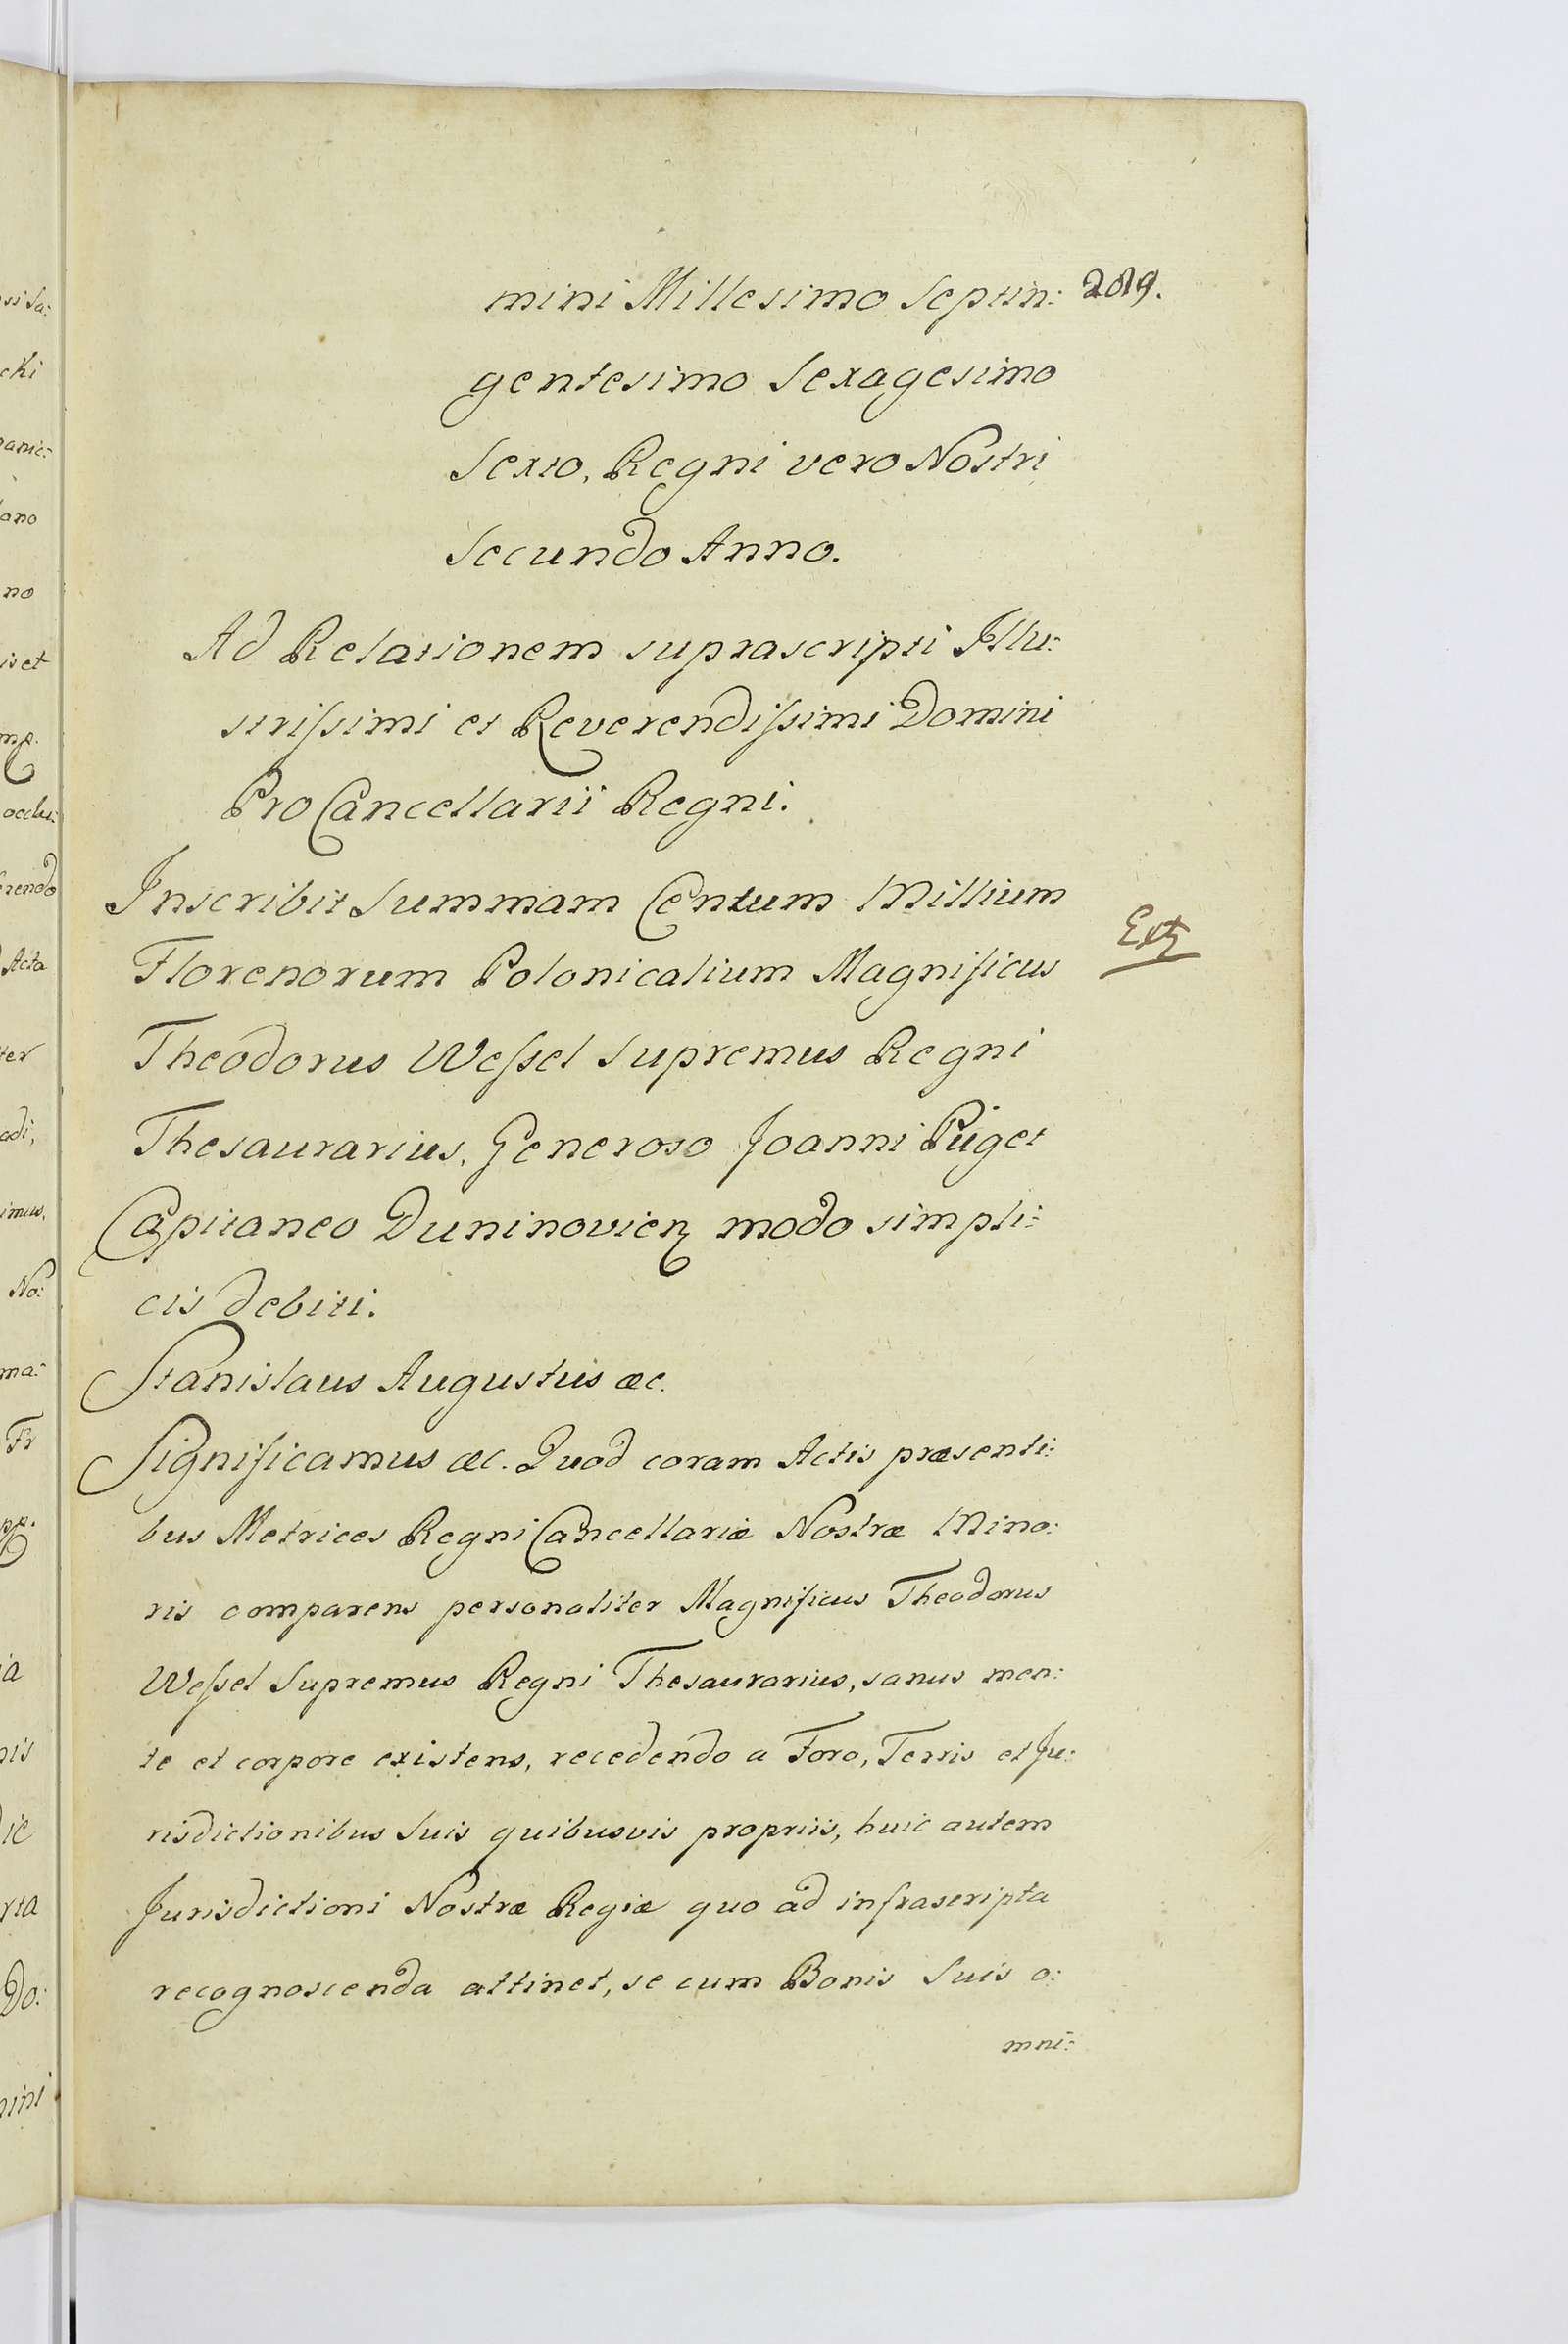 mini Millesimo Septin: 289.
gentesimo Sexagesimo
Sexto, Regni vero Nostri
Secundo Anno.
Ad Relationem suprascripti Illu:
strissimi et Reverendissimi Domini
Pro Cancellarii Regni.
Inscribit Summam Centum Millium
Florenorum Polonicalium Magnificus
Theodorus Wessel Supremus Regni
Thesaurarius, Generoso Joanni Püget
Capitaneo Duninovien modo simpli:
cis debiti.
Stanislaus Augustus &c.
Significamus &c. Quod coram Actis præsenti:
bus Metrices Regni Cancellariæ Nostræ Mino:
ris comparens personaliter Magnificus Theodorus
Wessel Supremus Regni Thesaurarius, sanus men:
te et corpore existens, recedendo a Foro, Terris et Ju:
risdictionibus Suis quibusvis propriis, huic autem
Jurisdictioni Nostræ Regiæ quo ad infrascripta
recognoscenda attinet, se cum Bonis Suis o:
mni: